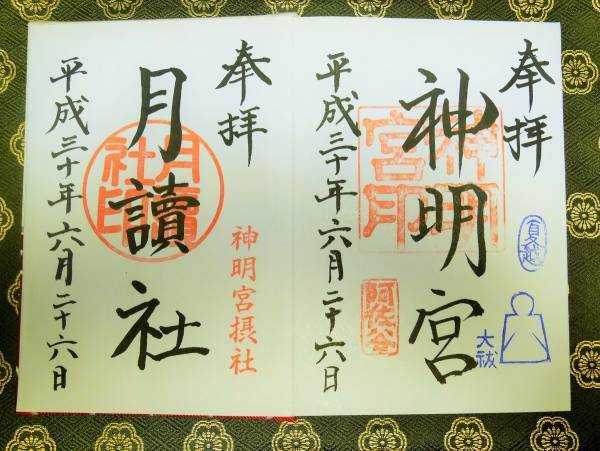 奉拝
夏越
大祓
神明宮
神明宮印
阿佐谷
平成三十年六月二十六日
奉拝
神明宮摂社
月讀社
月讀社印
平成三十年六月二十六日